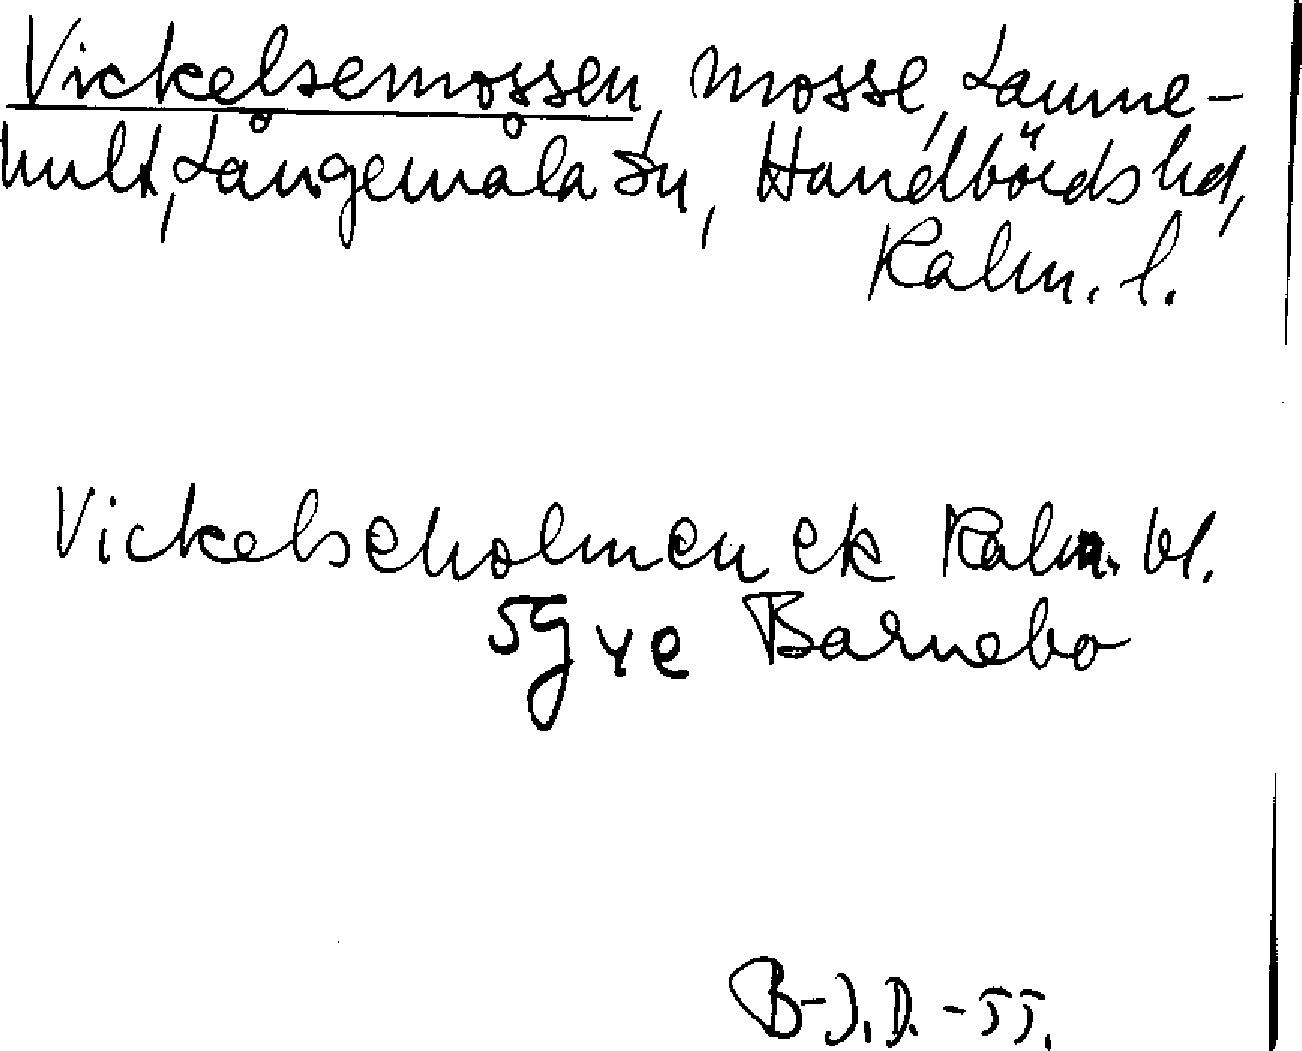 Vickelsemossen, mosse, Lamme-
hult, Långemåla sn, Handbörds hd,
Kalm. l.
Vickelseholmen ek Kalm. bl.
5g ve Barnebo
B-J.D. -55.